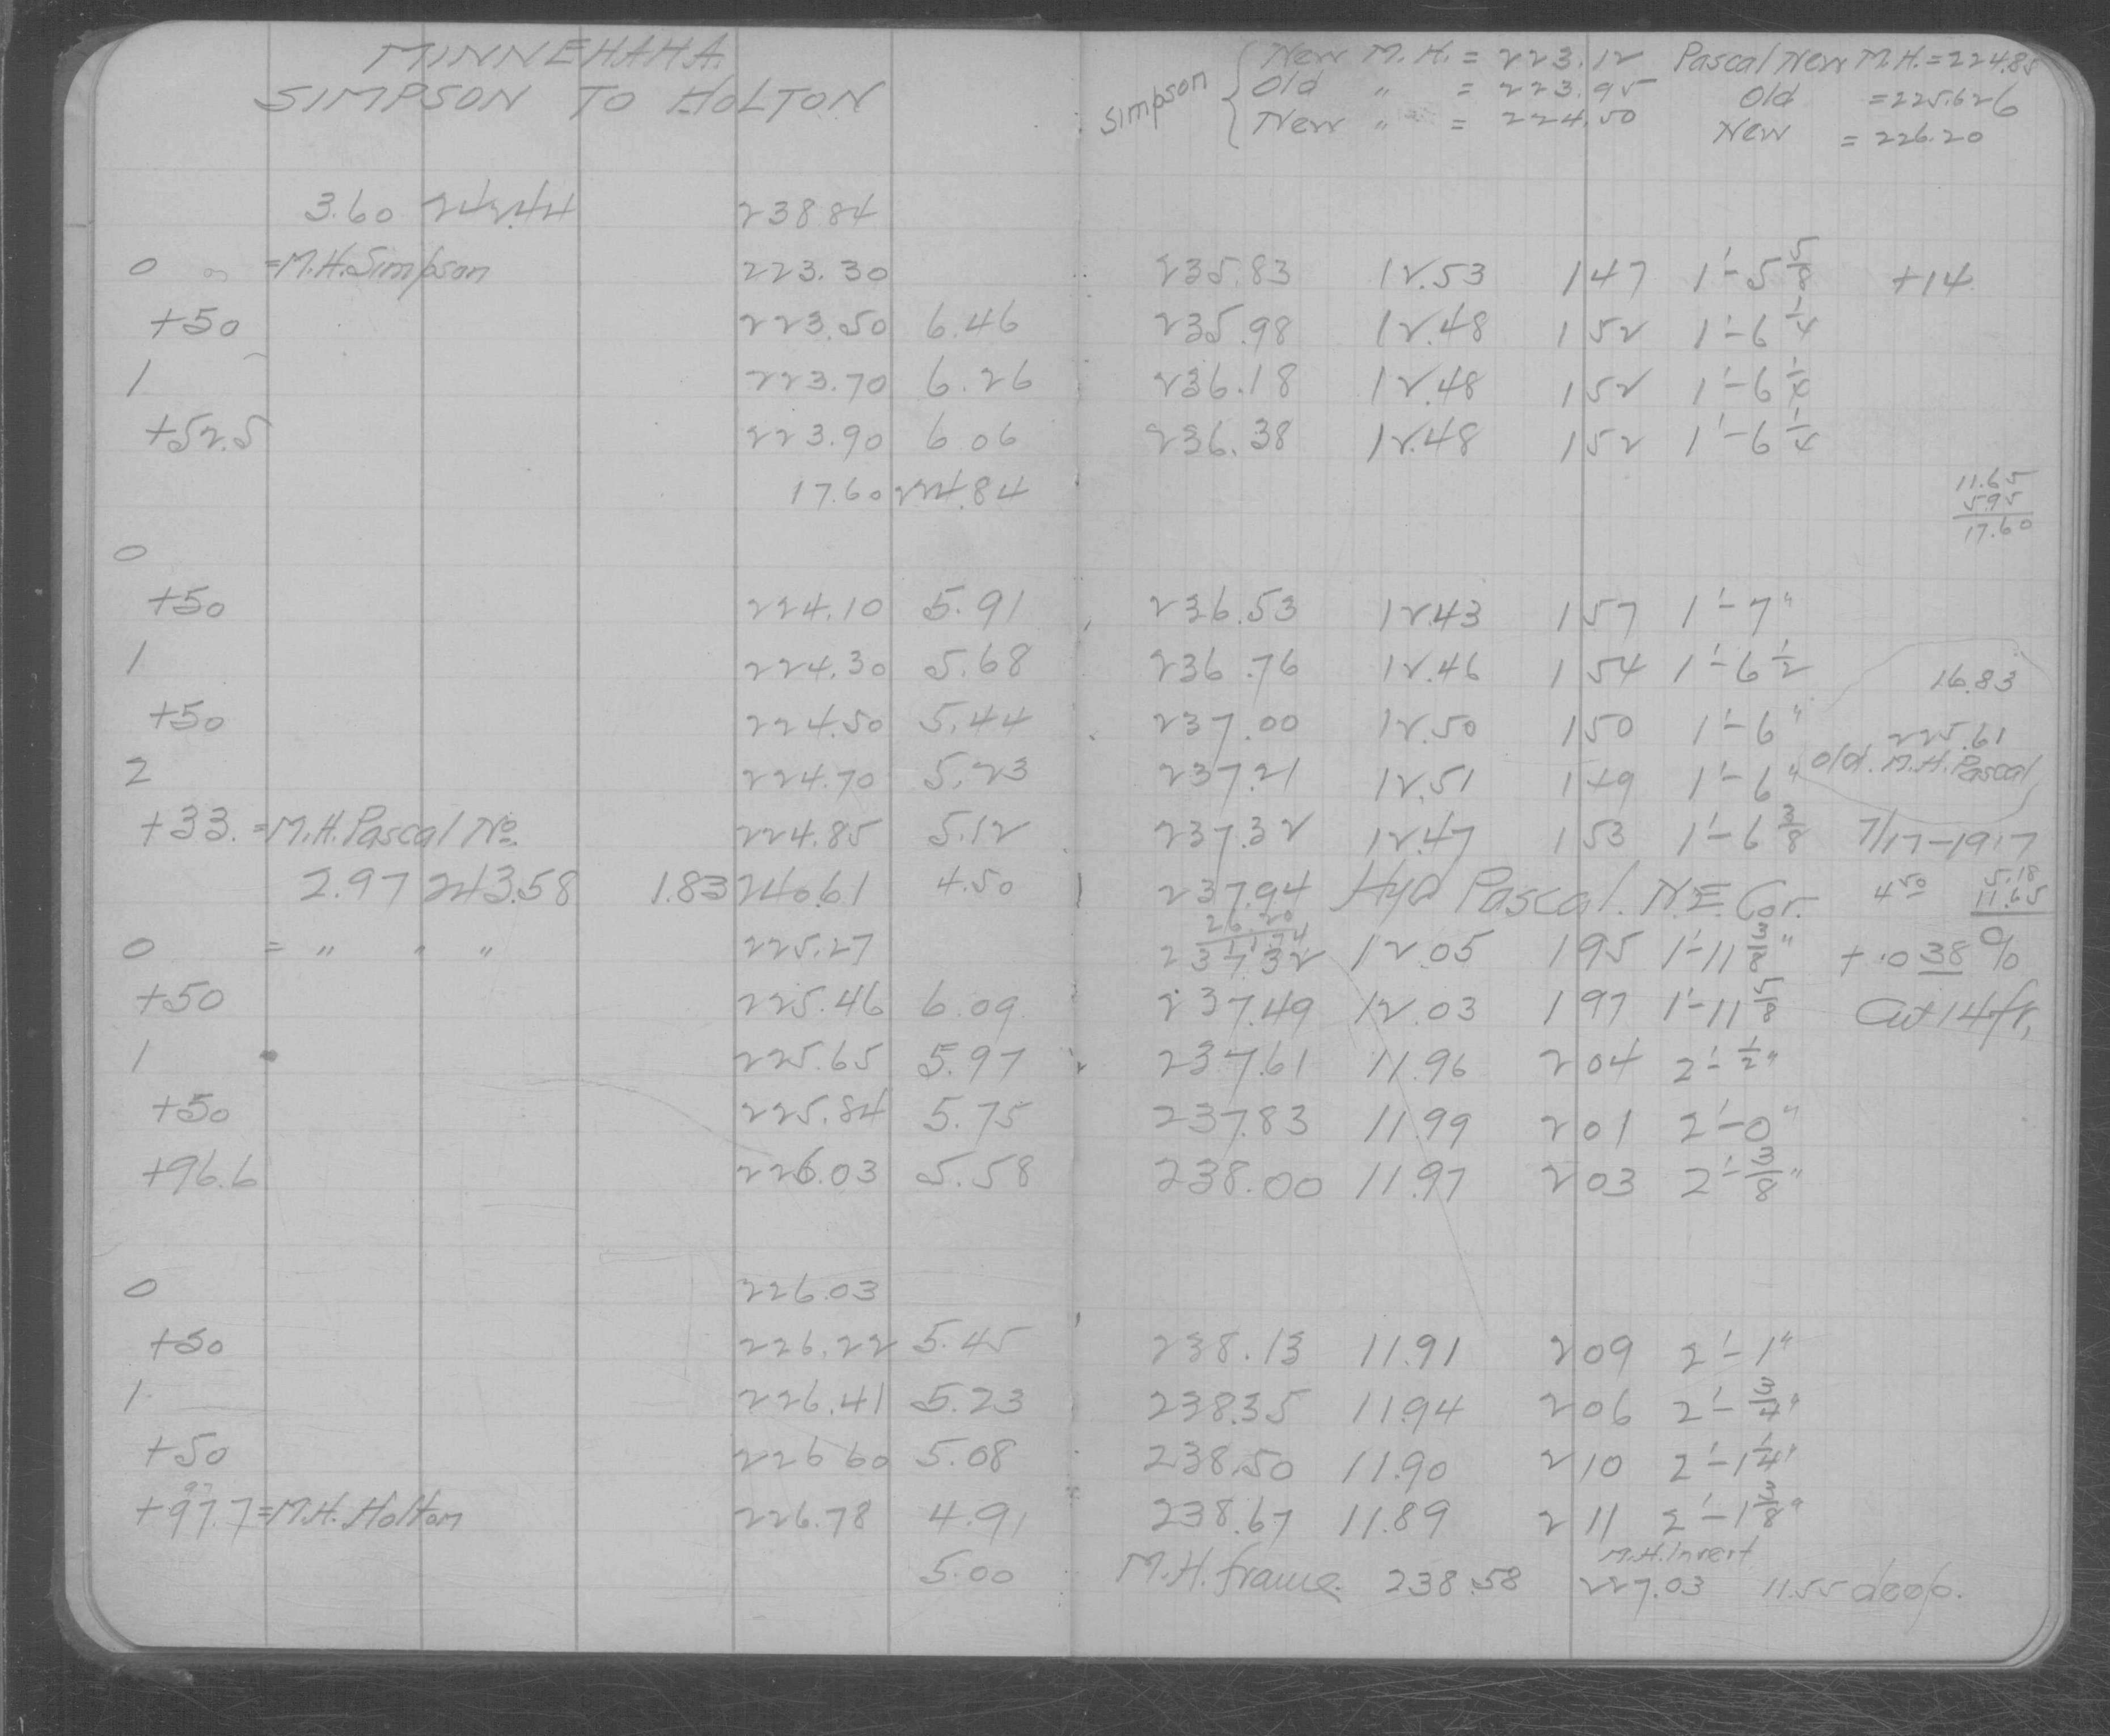 MINNEHAHA
SIMPSON TO HOLTON
Simpson { New M.H. = 223.12 Pascal New M.H. = 224.85
Old " = 223.95 Old = 225.626
New " = 224.50 New = 226.20
3.60 242.44 238.84
0 = M.H. Simpson 223.30 235.83 12.53 147 1'-5 5/8 +14
+50 223.50 6.46 235.98 12.48 152 1'-6 1/4
1 223.70 6.26 236.18 12.48 152 1'-6 1/4
+52.5 223.90 6.06 236.38 12.48 152 1'-6 1/4
17.60 224.84
11.65
5.95
17.60
0
+50 224.10 5.91 236.53 12.43 157 1'-7"
1 224.30 5.68 236.76 12.46 154 1'-6 1/2 16.83
+50 224.50 5.44 237.00 12.50 150 1'-6" 225.61
2 224.70 5.23 237.21 12.51 149 1'-6" Old. M.H. Pascal
+33. = M.H. Pascal No. 224.85 5.12 237.32 12.47 153 1'-6 3/8 7/17-1917
2.97 243.58 1.83 240.61 4.50 237.94 Hyd Pascal. N.E. Cor. 4 50 5.18
11.65
26.20
11.74
0 = " " " 225.27 237.32 12.05 195 1'-11 3/8" + .038 %
+50 225.46 6.09 237.49 12.03 197 1'-11 5/8 Cut 14 ft.
1 225.65 5.97 237.61 11.96 204 2'- 1/2"
+50 225.84 5.75 237.83 11.99 201 2'-0"
+96.6 226.03 5.58 238.00 11.97 203 2'- 3/8"
0 226.03
+50 226.22 5.45 238.13 11.91 209 2'-1"
1 226.41 5.23 238.35 11.94 206 2'- 3/4"
+50 226.60 5.08 238.50 11.90 210 2'-1 1/4"
+97.7 = M.H. Holton 226.78 4.91 238.67 11.89 211 2'-1 3/8"
M.H. Invert
5.00 M.H. frame. 238.58 227.03 11.55 deep.